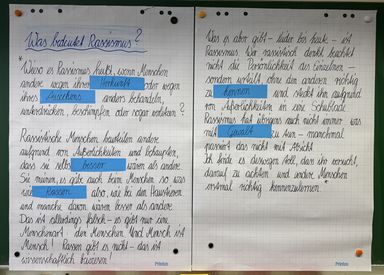 Was bedeutet Rassismus?
* Wieso es Rassismus heißt, wenn Menschen
andere wegen ihrer Herkunft oder wegen
ihres Aussehens anders behandeln,
unterdrücken, beschimpfen oder sogar verletzen?
Rassistische Menschen beurteilen andere
aufgrund von Äußerlichkeiten und behaupten,
dass sie selbst besser wären als andere.
Sie meinen, es gäbe auch beim Menschen so was
wie Rassen also, wie bei den Haustieren
und manche davon wären besser als andere.
Das ist allerdings falsch - es gibt nur eine
Menschenart: den Menschen! Und Mensch ist
Mensch! Rassen gibt es nicht - das ist
wissenschaftlich bewiesen!
Printus
Was es aber gibt - leider bis heute - ist
Rassismus. Wer rassistisch denkt, beachtet
nicht die Persönlichkeit des Einzelnen -
sondern urteilt, ohne den anderen richtig
zu kennen und steckt ihn aufgrund
von Äußerlichkeiten in eine Schublade.
Rassismus hat übrigens auch nicht immer was
mit Gewalt zu tun - manchmal
passiert das nicht mit
Ich finde es deswegen toll, dass ihr versucht,
darauf zu achten und andere Menschen
erstmal richtig kennenzulernen. *
Printus